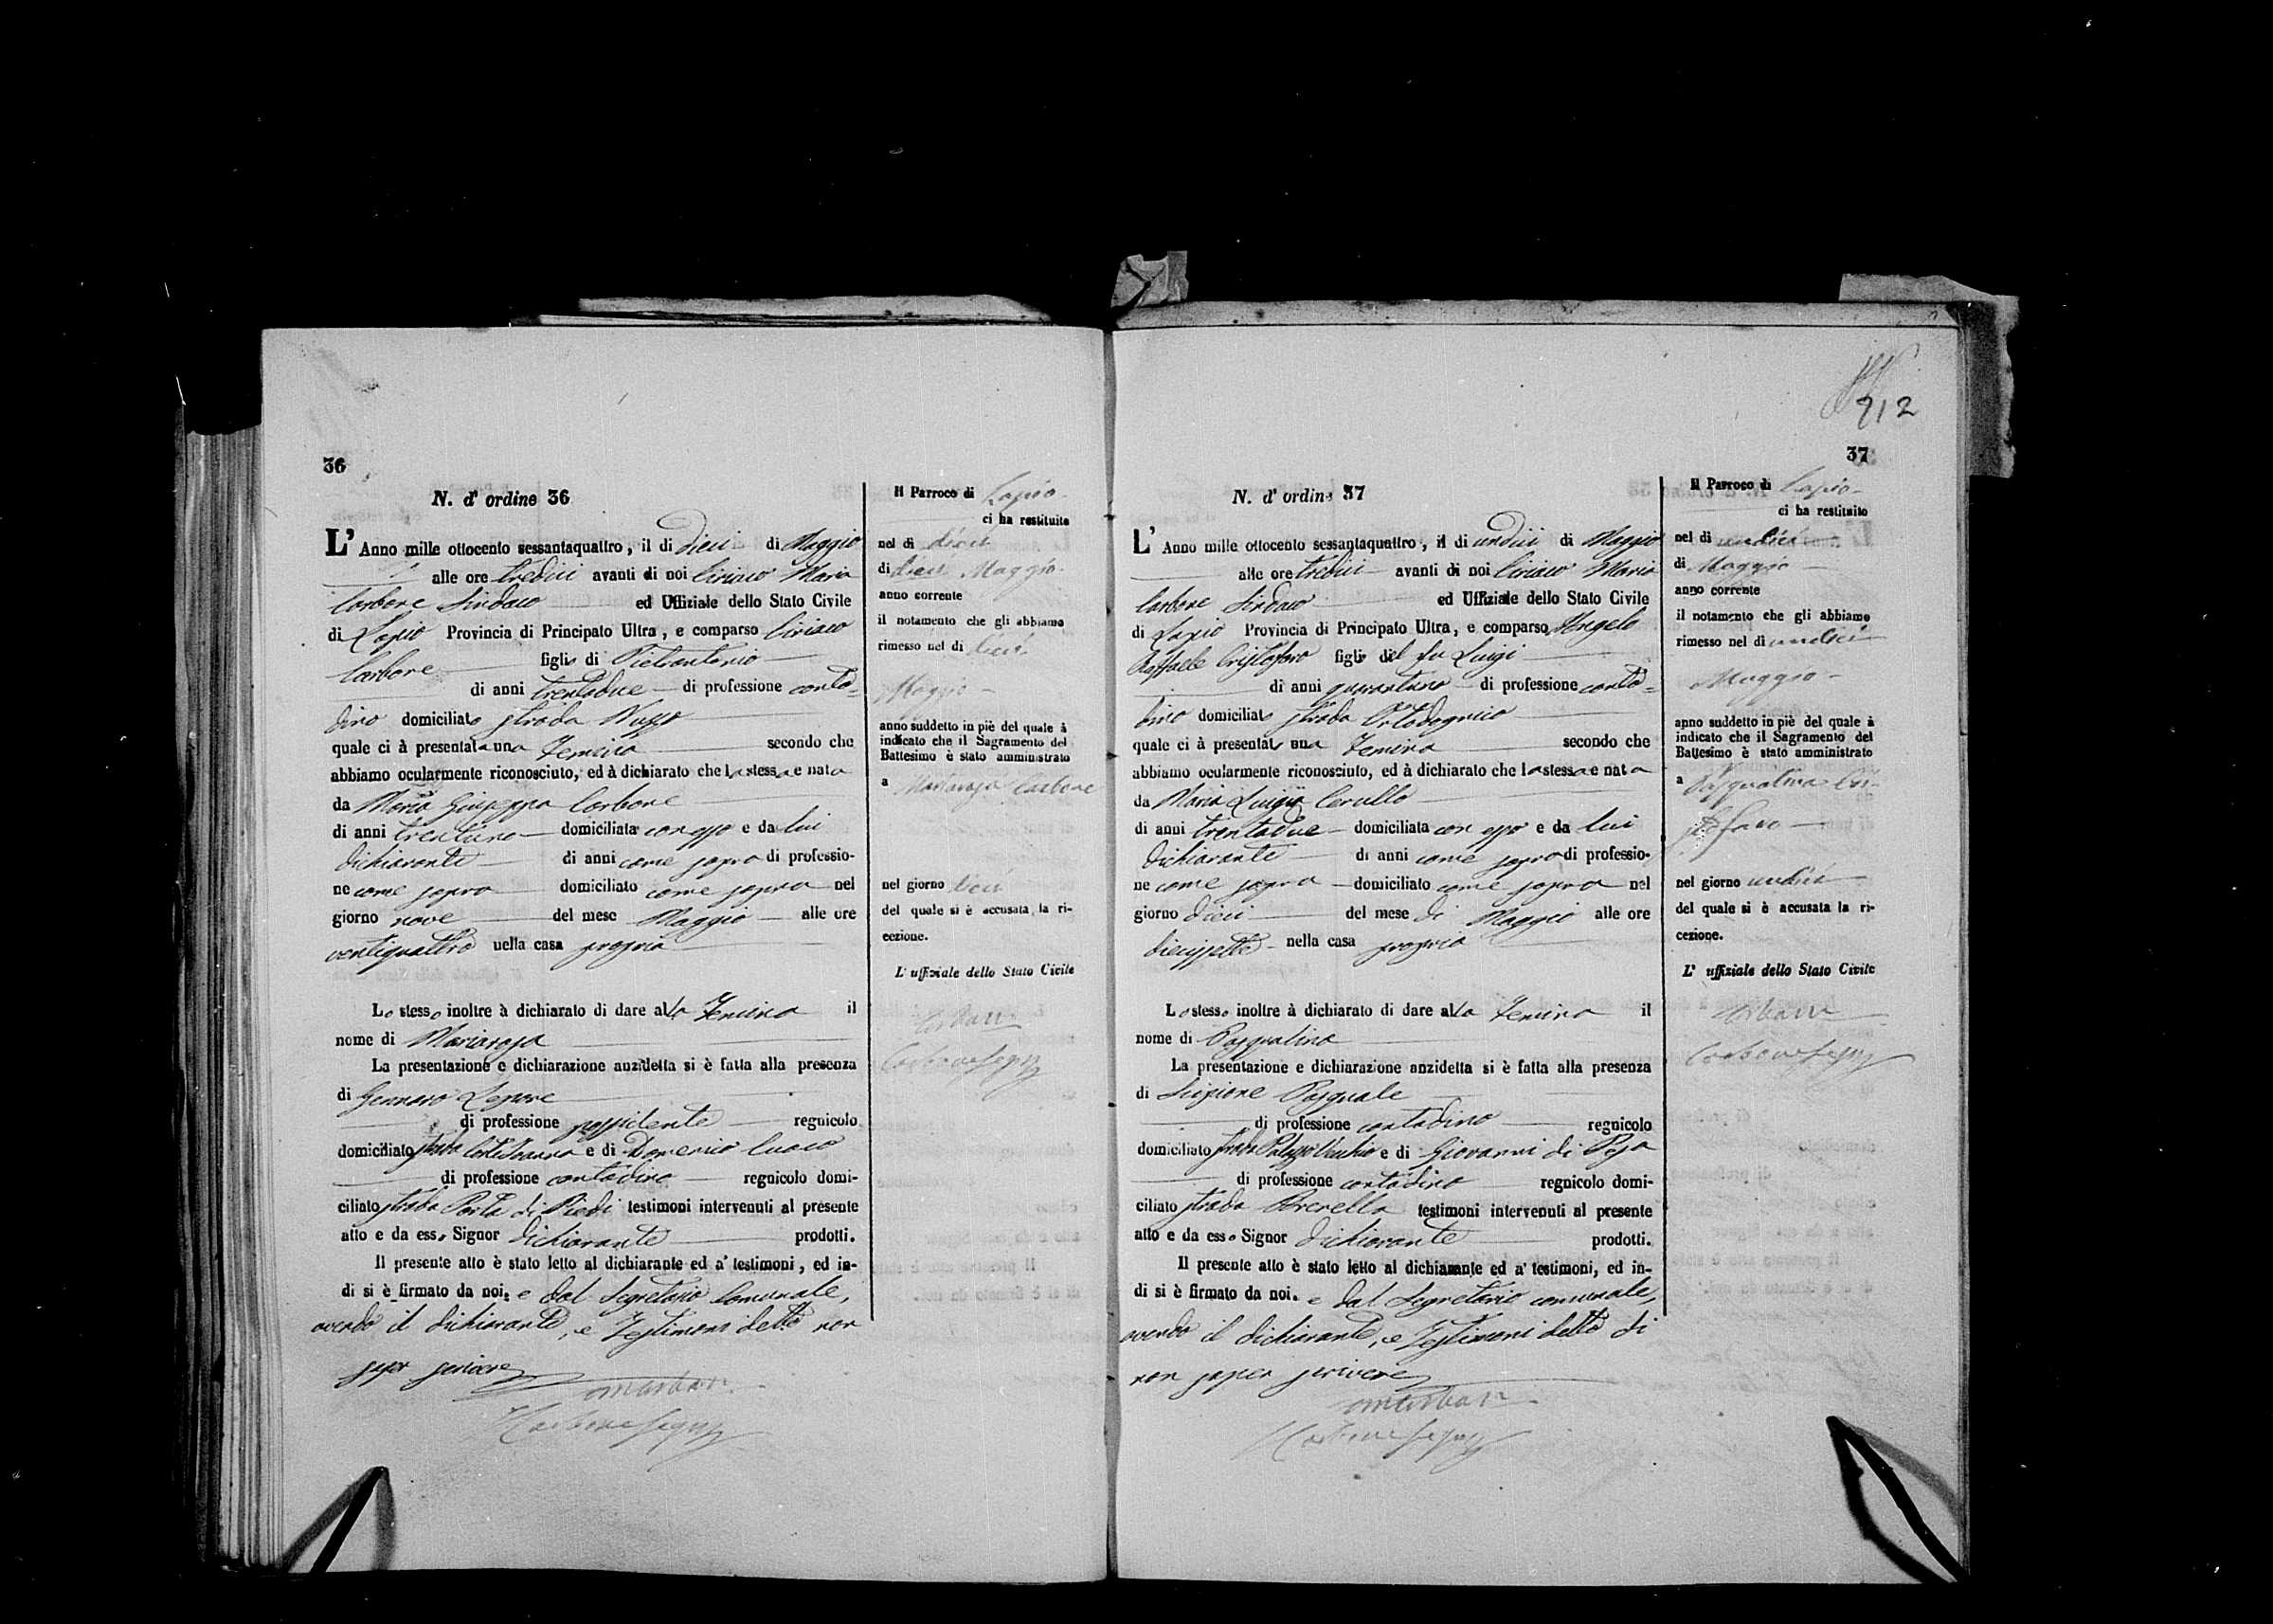 36
N. d' ordine 36
L' Anno mille ottocento sessantaquattro, il di dieci di Maggio
alle ore tredici avanti di noi Ciriaco Maria
Carbone Sindaco ed Uffiziale dello Stato Civile
di Lapio Provincia di Principato Ultra, e comparso Ciriaco
Carbone figlio di Pietrantonio
di anni trentadue di professione conta-
dino domiciliato strada
quale ci à presentata una Femina secondo che
abbiamo ocularmente riconosciuto, ed à dichiarato che la stessa e nata
da Maria Giuseppa Carbone
di anni trentuno domiciliata con esso e da lui
dichiarante di anni come sopra di professio-
ne come sopra domiciliato come sopra nel
giorno nove del mese Maggio alle ore
ventiquattro nella casa propria
Lo stesso inoltre à dichiarato di dare alla Femina il
nome di Mariarosa
La presentazione e dichiarazione anzidetta si è fatta alla presenza
di Gennaro Lepore
di professione possidente regnicolo
domiciliato strada e di Domenico
di professione contadino regnicolo domi-
ciliato strada Porta di Piedi testimoni intervenuti al presente
atto e da esso Signor dichiarante prodotti.
Il presente atto è stato letto al dichiarante ed a' testimoni, ed in-
di si è firmato da noi. e dal Segretario Comunale,
avendo il dichiarante, e Testimoni detto non
saper scrivere
Il Parroco di Lapio
ci ha restituito
nel di dieci
di dieci Maggio
anno corrente
il notamento che gli abbiamo
rimesso nel di dieci
Maggio
anno suddetto in piè del quale à
indicato che il Sagramento del
Battesimo è stato amministrato
a Mariarosa Carbone
nel giorno dieci
del quale si è accusata la ri-
cezione.
L' uffiziale dello Stato Civile
Carbone
212
37
N. d' ordine 37
L' Anno mille ottocento sessantaquattro, il di undici di Maggio
alle ore tredici avanti di noi Ciriaco Maria
Carbone Sindaco ed Uffiziale dello Stato Civile
di Lapio Provincia di Principato Ultra, e comparso Angelo
Raffaele Cristofaro figlio del fu Luigi
di anni quarantuno di professione conta-
dino domiciliato strada
quale ci à presentato una Femina secondo che
abbiamo ocularmente riconosciuto, ed à dichiarato che la stessa e nata
da Maria Luigia Cerullo
di anni trentadue domiciliata con esso e da lui
dichiarante di anni come sopra di professio-
ne come sopra domiciliato come sopra nel
giorno dieci del mese di Maggio alle ore
diecissette nella casa propria
Lo stesso inoltre à dichiarato di dare alla Femina il
nome di Pasqualina
La presentazione e dichiarazione anzidetta si è fatta alla presenza
di Scipione Pasquale
di professione contadino regnicolo
domiciliato strada Palazzo Vecchio e di Giovanni di Rosa
di professione contadino regnicolo domi-
ciliato strada testimoni intervenuti al presente
atto e da esso Signor dichiarante prodotti.
Il presente atto è stato letto al dichiarante ed a' testimoni, ed in-
di si è firmato da noi. e dal Segretario comunale,
avendo il dichiarante, e Testimoni detto di
non saper scrivere
Il Parroco di Lapio
ci ha restituito
nel di undici
di Maggio
anno corrente
il notamento che gli abbiamo
rimesso nel di undici
Maggio
anno suddetto in piè del quale à
indicato che il Sagramento del
Battesimo è stato amministrato
a Pasqualina Cri-
stofaro
nel giorno undici
del quale si è accusata la ri-
cezione.
L' uffiziale dello Stato Civile
Carbone